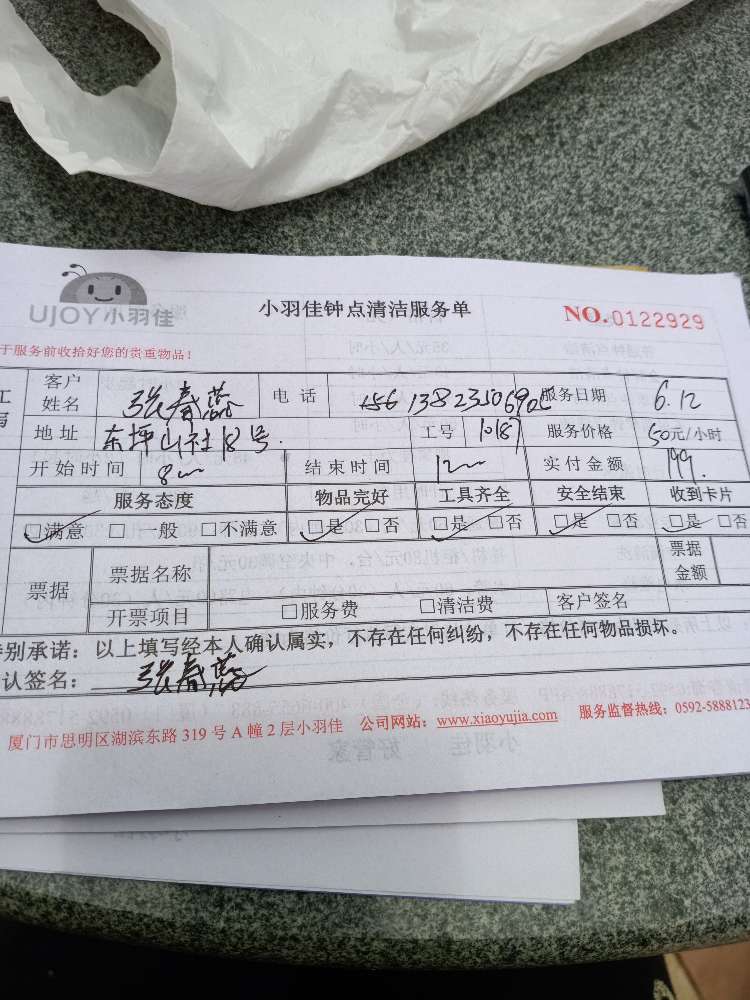 UJOY小羽佳
小羽佳钟点清洁服务单
NO.0122929
于服务前收拾好您的贵重物品！
客户姓名 张春蕊 电话 服务日期 6.12
地址 东坪山社18号. 工号 10187 服务价格 50元/小时
开始时间 8 结束时间 12 实付金额 199.
服务态度 物品完好 工具齐全 安全结束 收到卡片
□满意 □一般 □不满意 □是 □否 □是 □否 □是 □否 □是 □否
票据 票据名称 票据金额
开票项目 □服务费 □清洁费 客户签名
别承诺：以上填写经本人确认属实，不存在任何纠纷，不存在任何物品损坏。
认签名： 张春蕊
厦门市思明区湖滨东路 319 号 A 幢 2 层小羽佳 公司网站：www.xiaoyujia.com 服务监督热线：0592-5888123